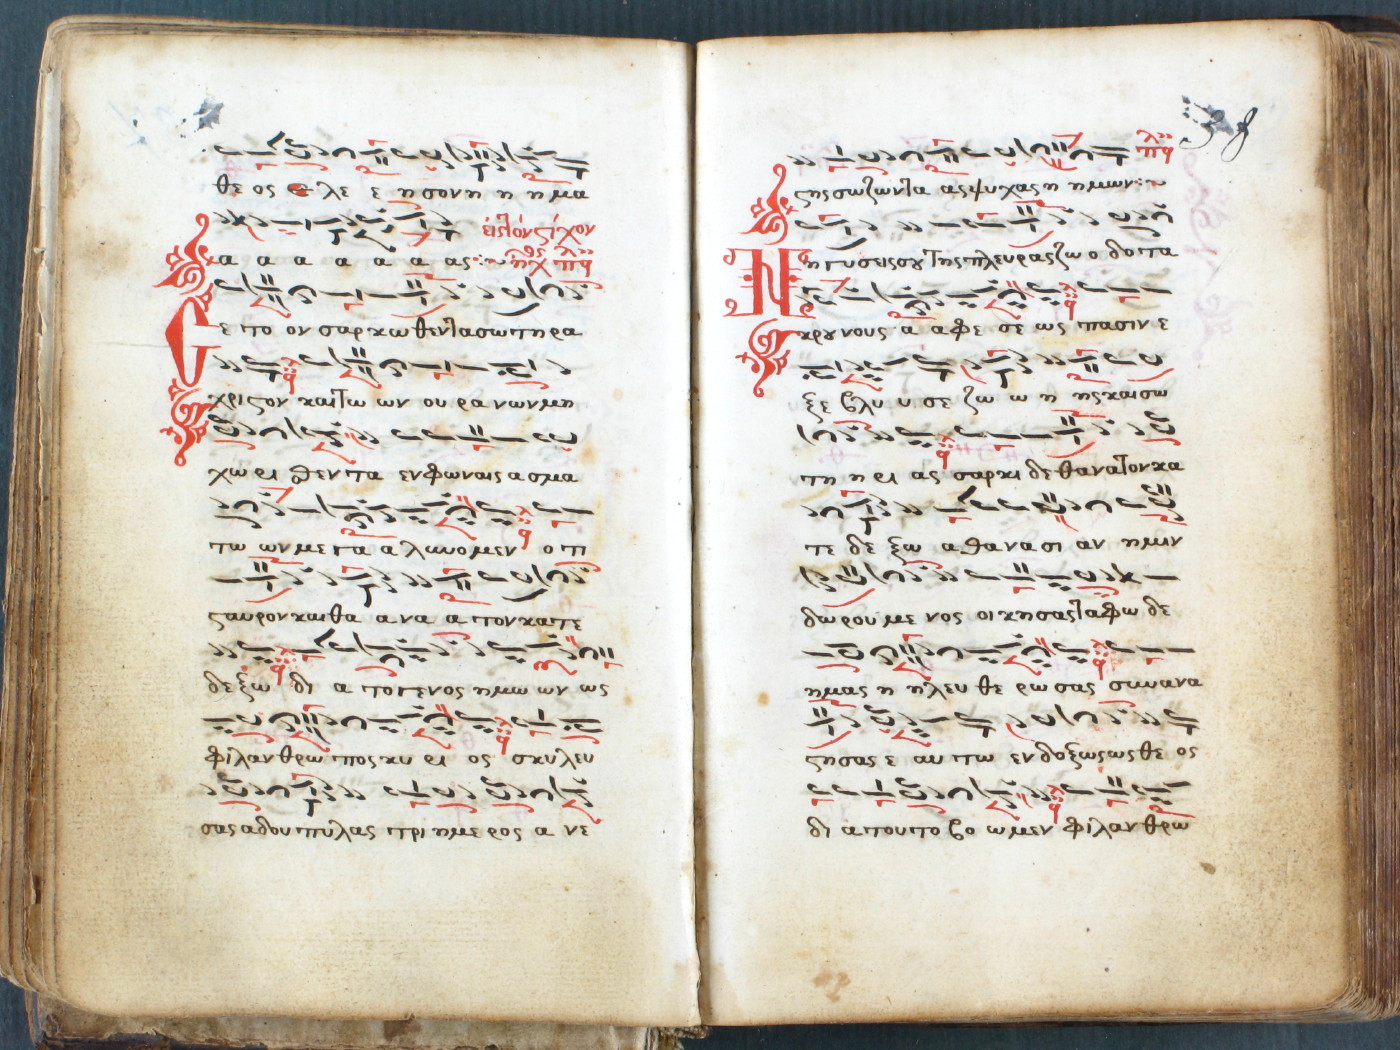 θε ος ε λε ε η σον η η η μα
εις τον στίχον
α α α α α α ας ἦχος πλ
ε πο ον σαρκωθεντα σωτηρα
χριστον και τω ων ου ρα νων μη
χω ρι σθεν τα εν φωναις α σμα
τω ων με γα α λυνομεν ο τι
σταυρον και θα α να α τον κατε
δε ξω δι α το γενος ημω ων ως
φιλανθρω πος κυ ρι ος σκυλευ
σας αδου πυλας τρι ημε ρος α νε
πλ
στης σωζων τα ας ψυχας η ημων
Ν η τυσεις σου της πλευρας ζω ο δο τα
κρουνους α α φε σε ως πασιν ε
ξε βλυ υ σε ζω ω η ης και σω
τη η ρι ας σαρκι δε θανατον κα
τε δε ξω α θανασι αν ημιν
δωρουμε νος οικησας ταφω δε
ημας η ηλευ θε ρω σας συνανα
στησας ε αυ τω ενδοξως ως θε ος
δι α τουτο βο ωμεν φιλανθρω